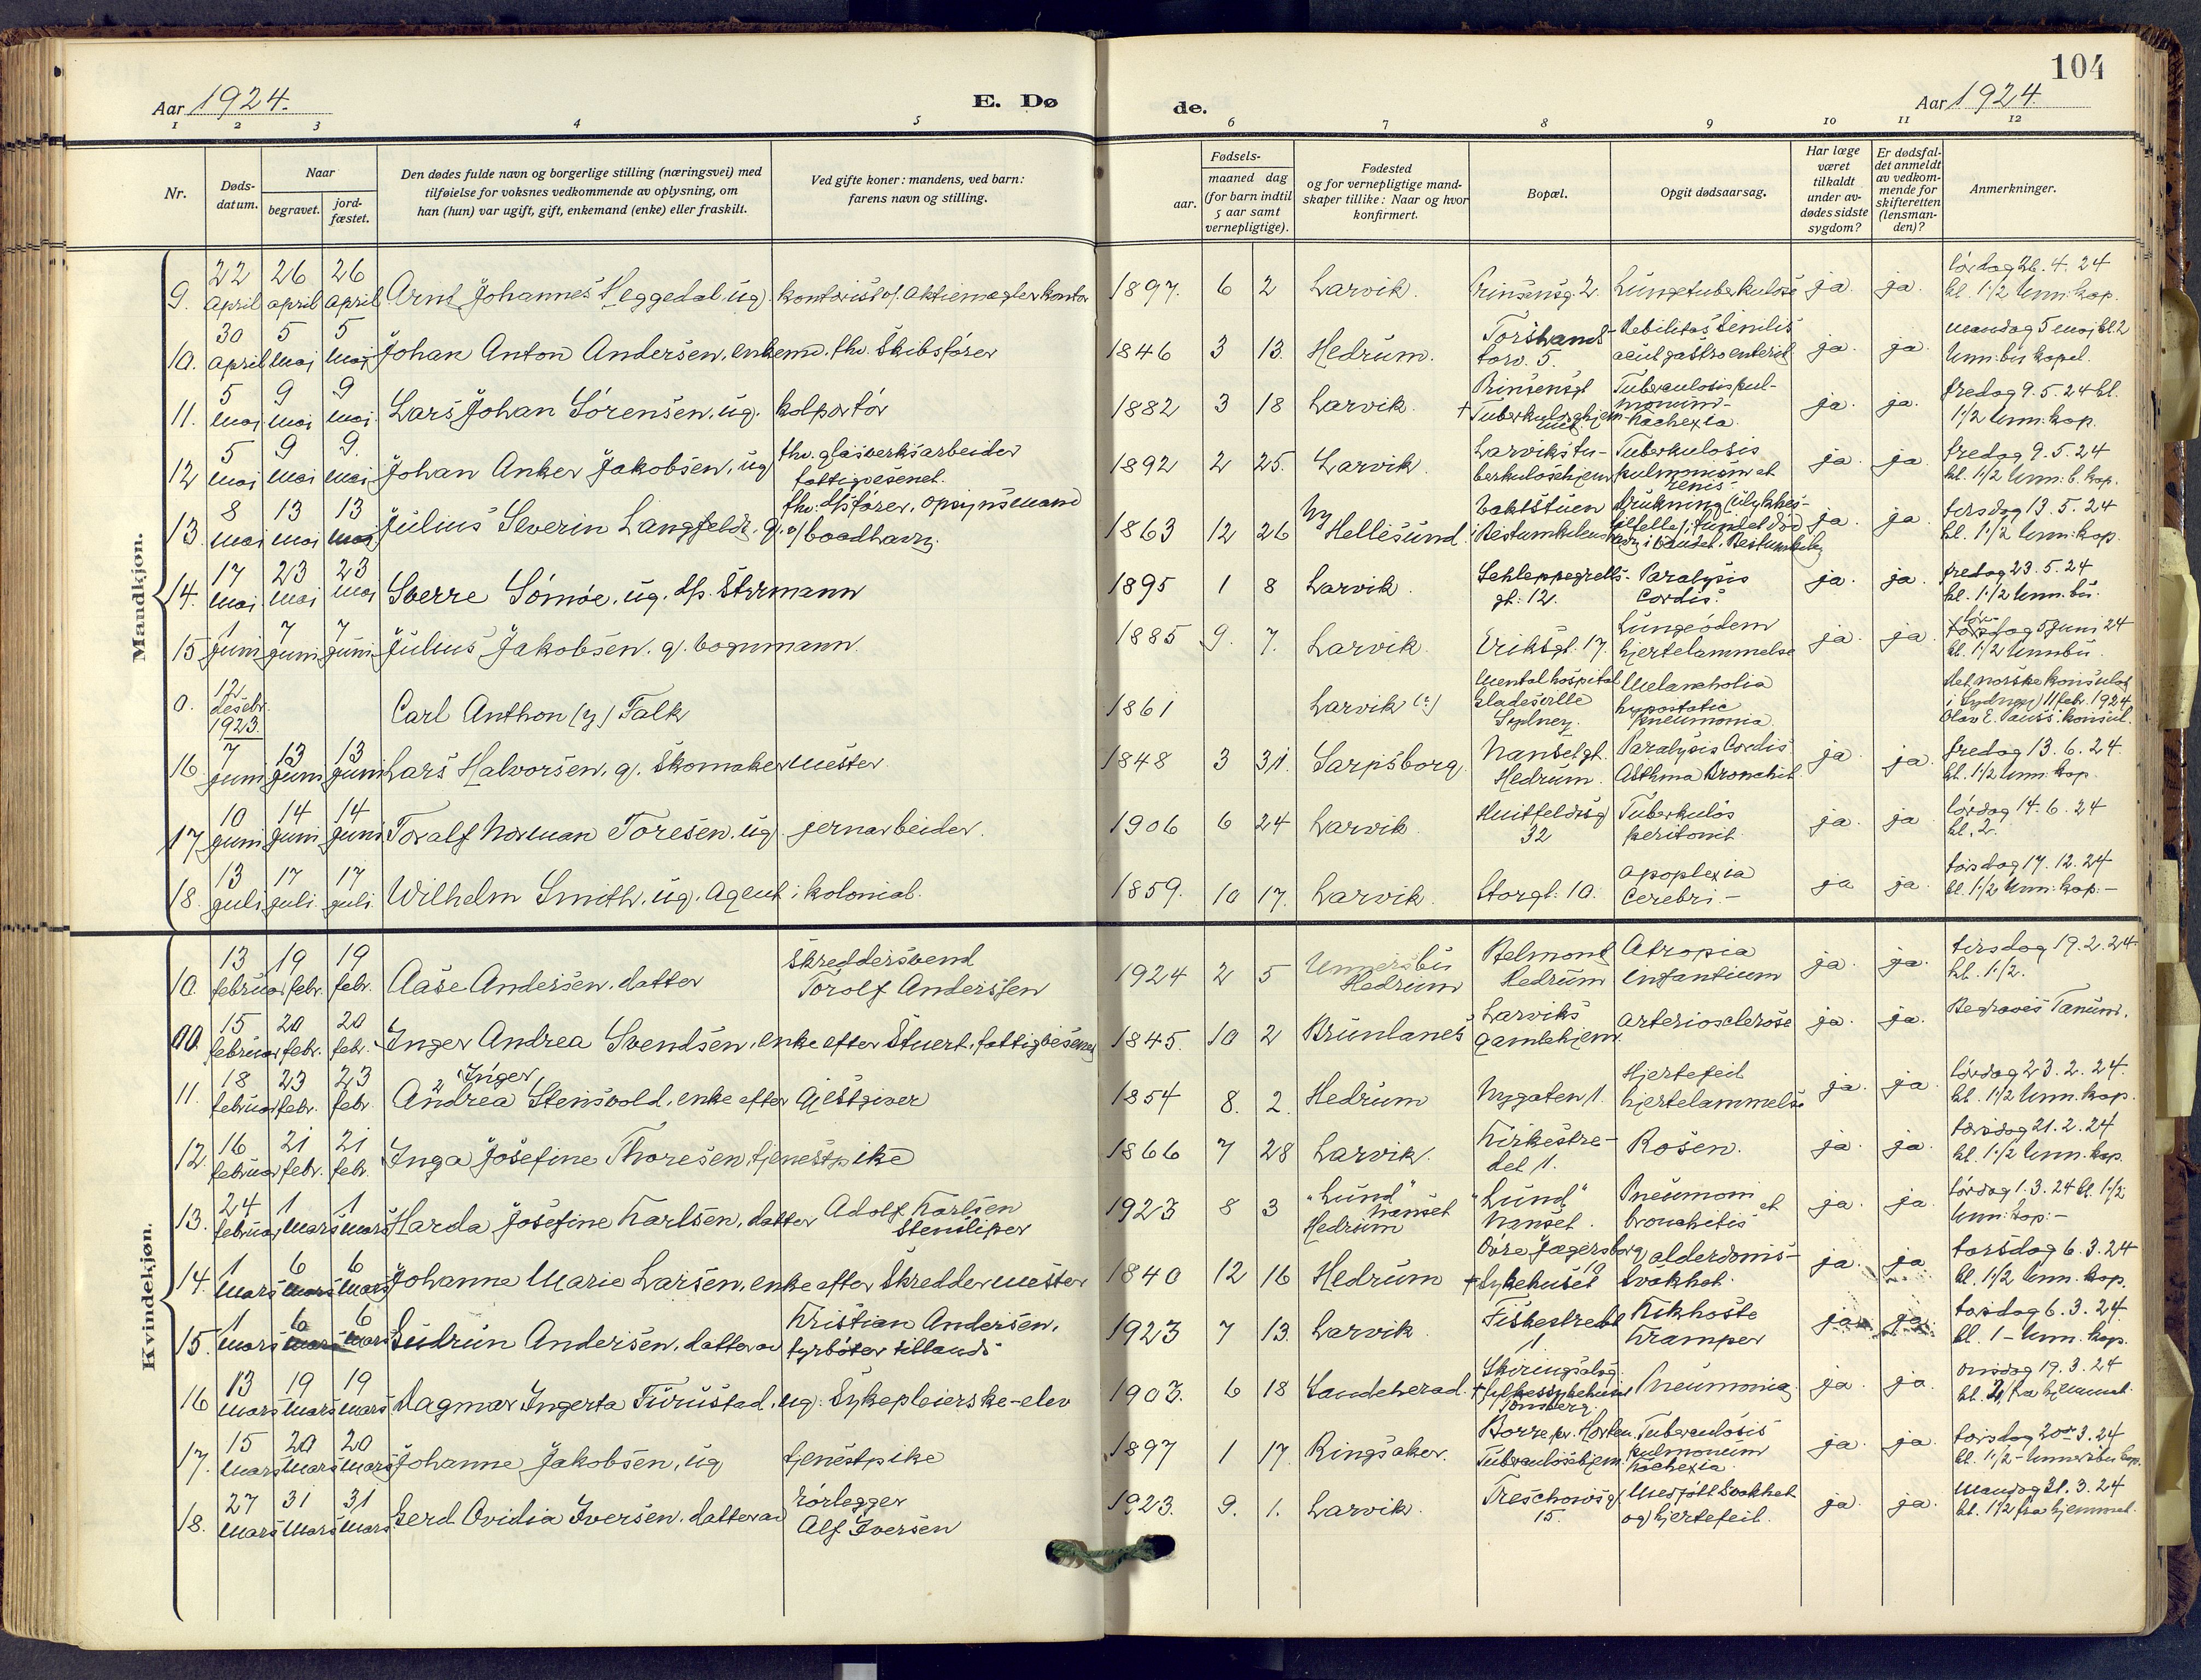 104
Aar 1924. E. Dø de. Aar 1924.
1 2 3 4 5 6 7 8 9 10 11 12
Nr.
Døds-
datum.
Naar
begravet.
jord-
fæstet.
Den dødes fulde navn og borgerlige stilling (næringsvei) med
tilføielse for voksnes vedkommende av oplysning, om
han (hun) var ugift, gift, enkemand (enke) eller fraskilt.
Ved gifte koner: mandens, ved barn:
farens navn og stilling.
Fødsels-
aar.
maaned dag
(for barn indtil
5 aar samt
vernepligtige).
Fødested
og for vernepligtige mand-
skaper tillike: Naar og hvor
konfirmert.
Bopæl.
Opgit dødsaarsag.
Har læge
været
tilkaldt
under av-
dødes sidste
sygdom?
Er dødsfal-
det anmeldt
av vedkom-
mende for
skifteretten
(lensman-
den)?
Anmerkninger.
Mandkjøn.
9. 22 april 26 april 26 april Arnt Johannes Heggedal. ug. kontorist v/ aktiemæglerkontor 1897. 6 2 Larvik. Prinsensg. 2. Lungetuberkulose ja. ja. lørdag 26. 4. 24
kl. 1 1/2 Unn: kap.
10. 30 april 5 mai 5 mai Johan Anton Andersen. enkem. fhv. Skibsfører 1846 3 13. Hedrum. Torstrands-
torv. 5. Debilitas senilis
acut gastroenterit ja. ja. mandag 5 mai kl 2
Unn: bu kapel.
11. 5 mai 9 mai 9 mai Lars Johan Sørensen. ug. kolportør 1882 3 18 Larvik. Prinsensgt
Tuberculosis pul-
monum-
kachexia. ja. ja. fredag 9. 5. 24 kl.
1 1/2 Unn. kap.
12 5 mai 9 mai 9. mai Johan Anker Jakobsen. ug fhv. glasverksarbeider
fattigvesenet. 1892 2 25. Larvik. Larviks tu-
berkulosehjem Tuberkulosis
pulmonum et
renis. ja. ja. fredag 9. 5. 24
kl. 1 1/2 Unn: b. kap.
13. 8 mai 13 mai 13 mai Julius Severin Langfeldt. g. fhv. d/s fører. opsynsmand
v/ baadhavn. 1863 12 26 Ny
Hellesund. Vaktstuen
Drukning (ulykkes-
tilfelle); fundet død
ja. ja. tirsdag 13. 5. 24
kl. 1 1/2 Unn: kap.
14. 17 mai 23 mai 23 mai Sverre Sømoe. ug. d/s. Styrmann 1895 1 8 Larvik. Schleppegrells-
gt. 12. Paralysis
Cordis. ja. ja. fredag 23. 5. 24
kl. 1 1/2 Unn. bu.
15 1 juni 7 juni 7 juni. Julius Jakobsen. g. vognmann. 1885 9. 7. Larvik. Eriksgt. 17. Lungeødem
hjertelammelse ja. ja. juni 24
kl. 1 1/2 Unnbu.
0. 12 desebr. 1923. Carl Anthon (y) Falk 1861 Larvik (?) Mental hospital
Gladesville
Sydney. Melancholia
hypostatic
pneumonia. Det norske konsulat
i Sydney 11 febr. 1924
Olav E. Pauss. konsul.
16. 7 juni 13 juni 13 juni Lars Halvorsen. g. Skomakermester. 1848 3 31. Sarpsborg. Nansetgt.
Hedrum. Paralysis Cordis
Asthma Bronchit ja. ja. fredag 13. 6. 24.
kl. 1 1/2 Unn: kap.
17 10 juni 14 juni 14 juni Toralf Norman Toresen. ug. jernarbeider. 1906 6 24 Larvik. Huitfeldtsg
32 Tuberkuløs
peritonit. ja. ja lørdag 14. 6. 24
kl. 2.
18. 13 juli 17 juli. 17 juli. Wilhelm Smith. ug. Agent i kolonial. 1859. 10 17. Larvik. Storgt: 10. apoplexia
Cerebri.- ja ja. torsdag 17. 12. 24
kl. 1 1/2 Unn: kap.-
Kvindekjøn.
10. 13 februar 19 febr. 19 febr. Aase Andersen. datter Skreddersvend
Torolf Anderssen 1924 2 5 Unnersbu
Hedrum Belmont
Hedrum Atropia
Infantium ja. ja. tirsdag 19. 2. 24
kl. 1 1/2.
00. 15 februar 20 febr. 20 febr. Inger Andrea Svendsen. enke efter Stuert. fattigvesenet 1845. 10 2 Brunlanes Larviks
gamlehjem. arteriosclerose ja. ja. Begraves Tanum.
11. 18 februar 23 febr. 23 febr. Andrea Inger Stensvold. enke efter Gjestgiver 1854 8. 2. Hedrum Nygaten 1. Hjertefeil
hjertelammelse ja. ja. lørdag 23. 2. 24.
kl. 1 1/2 Unn. kap.
12. 16 februar 21 febr. 21 febr. Inga Josefine Thoresen. tjenestpike 1866 7 28 Larvik. Kirkestre-
det 1. Rosen. ja. ja. torsdag 21. 2. 24
kl. 1 1/2 Unn. kap.
13. 24 februar 1 mars 1 mars Harda Josefine Karlsen. datter Adolf Karlsen
Stensliper 1923 8 3 "Lund"
Nanset
Hedrum "Lund"
Nanset. Pneumoni et
bronchitis ja. ja. lørdag 1. 3. 24 kl. 1 1/2
Unn: kap.-
14. 1 mars 6 mars 6 mars Johanne Marie Larsen. enke efter Skreddermester 1840 12 16 Hedrum Øvre Jægersborg 10
+ Sykehuset alderdoms-
svakhet. ja. ja torsdag 6. 3. 24
kl. 1 1/2 Unn. kap.
15. 1 mars 6 mars 6 mars Gudrun Andersen. datter av Kristian Andersen.
fyrbøter tillands 1923 7 13. Larvik. Fiskestredet
11 Kikhoste
kramper ja. ja. torsdag 6. 3. 24
kl. 1 - Unn. kap.
16 13 mars 19 mars 19 mars Dagmar Ingerta Furustad. ug. Sykepleierske-elev 1903. 6 18 Sandeherad. Skiringssalsg.
+ fylkessykehuset
Tønsberg. Pneumonia ja. ja. onsdag 19. 3. 24
kl. 2 fra hjemmet.
17. 15 mars 20 mars 20 mars Johanne Jakobsen. ug tjenestpike 1897 1 17. Ringsaker. Borre pr. Horten.
Tuberculosehjem. Tuberculosis
pulmonum
Kachexia. ja. ja. torsdag 20 3. 24
kl. 1 1/2 - Unnersbu kap.
18. 27 mars 31 mars 31 mars Gerd Ovidia Iversen. datter av rørlegger
Alf Iversen 1923. 9. 1. Larvik. Treschowsgt.
15. Medfødt svakhet
og hjertefeil. ja. ja. mandag 31. 3. 24
kl. 1 1/2 fra hjemmet.